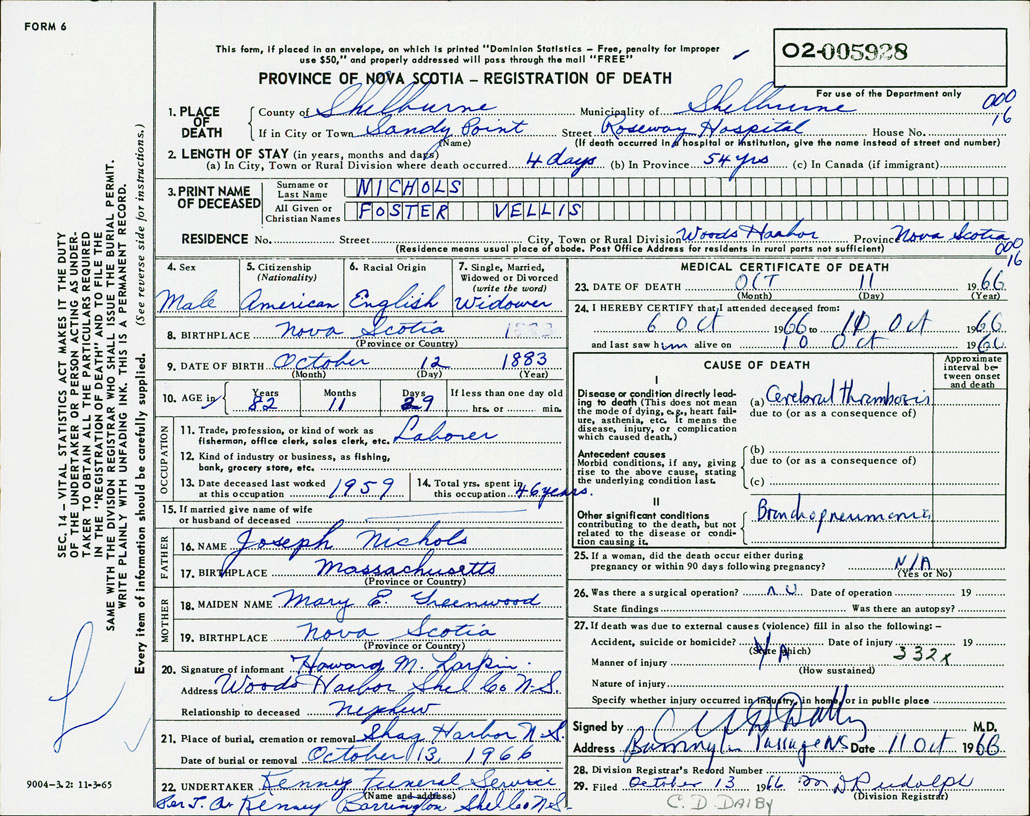 FORM 6
This form, if placed in an envelope, on which is printed "Dominion Statistics – Free, penalty for improper
use $50," and properly addressed will pass through the mail "FREE"
O2-005928
PROVINCE OF NOVA SCOTIA – REGISTRATION OF DEATH
For use of the Department only
000
16
1. PLACE OF DEATH
County of Shelburne Municipality of Shelburne
If in City or Town Sandy Point Street Roseway Hospital House No.
(Name) (If death occurred in a hospital or institution, give the name instead of street and number)
2. LENGTH OF STAY (in years, months and days)
(a) In City, Town or Rural Division where death occurred 4 days (b) In Province 54 yrs (c) In Canada (if immigrant)
3. PRINT NAME OF DECEASED
Surname or Last Name NICHOLS
All Given or Christian Names FOSTER VELLIS
RESIDENCE No. Street City, Town or Rural Division Woods Harbor Province Nova Scotia
(Residence means usual place of abode. Post Office Address for residents in rural parts not sufficient)
000
16
4. Sex
Male
5. Citizenship
(Nationality)
American
6. Racial Origin
English
7. Single, Married,
Widowed or Divorced
(write the word)
Widower
8. BIRTHPLACE Nova Scotia
(Province or Country)
9. DATE OF BIRTH October 12 1883
(Month) (Day) (Year)
10. AGE in
Years Months Days If less than one day old
82 11 29 hrs. or min.
OCCUPATION
11. Trade, profession, or kind of work as
fisherman, office clerk, sales clerk, etc. Laborer
12. Kind of industry or business, as fishing,
bank, grocery store, etc.
13. Date deceased last worked
at this occupation 1959
14. Total yrs. spent in
this occupation 46 years.
15. If married give name of wife
or husband of deceased
FATHER
16. NAME Joseph Nichols
17. BIRTHPLACE Massachusetts
(Province or Country)
MOTHER
18. MAIDEN NAME Mary E. Greenwood
19. BIRTHPLACE Nova Scotia
(Province or Country)
20. Signature of informant Howard M. Larkin.
Address Woods Harbor Shel Co N.S.
Relationship to deceased nephew
21. Place of burial, cremation or removal Shag Harbor N.S.
Date of burial or removal October 13, 1966
22. UNDERTAKER Kenney Funeral Service
(Name and address)
Kenney Barrington Shel Co N.S.
MEDICAL CERTIFICATE OF DEATH
23. DATE OF DEATH OCT 11 1966
(Month) (Day) (Year)
24. I HEREBY CERTIFY that I attended deceased from:
6 Oct 1966 to 10, Oct 1966
and last saw him alive on 10 Oct 1966
CAUSE OF DEATH
Approximate
interval be-
tween onset
and death
I
Disease or condition directly lead-
ing to death (This does not mean
the mode of dying, e.g., heart fail-
ure, asthenia, etc. It means the
disease, injury, or complication
which caused death.)
(a) Cerebral thrombosis
due to (or as a consequence of)
Antecedent causes
Morbid conditions, if any, giving
rise to the above cause, stating
the underlying condition last.
(b)
due to (or as a consequence of)
(c)
II
Other significant conditions
contributing to the death, but not
related to the disease or condi-
tion causing it.
Bronchopneumonia
25. If a woman, did the death occur either during
pregnancy or within 90 days following pregnancy? N/A
(Yes or No)
26. Was there a surgical operation? no Date of operation 19
State findings Was there an autopsy?
27. If death was due to external causes (violence) fill in also the following:–
Accident, suicide or homicide? N/A Date of injury 19
(State which)
332x
Manner of injury
(How sustained)
Nature of injury
Specify whether injury occurred in industry, in home, or in public place
Signed by M.D.
Address Barrington Passage NS Date 11 Oct 1966
28. Division Registrar's Record Number
29. Filed October 13 1966 Rudolph
(Division Registrar)
C. D. DALBY
SEC. 14 – VITAL STATISTICS ACT MAKES IT THE DUTY
OF THE UNDERTAKER OR PERSON ACTING AS UNDER-
TAKER TO OBTAIN ALL THE PARTICULARS REQUIRED
IN THE "REGISTRATION OF DEATH" AND TO FILE THE
SAME WITH THE DIVISION REGISTRAR WHO SHALL ISSUE THE BURIAL PERMIT.
WRITE PLAINLY WITH UNFADING INK. THIS IS A PERMANENT RECORD.
Every item of information should be carefully supplied. (See reverse side for instructions.)
9004–3.2: 11-3-65